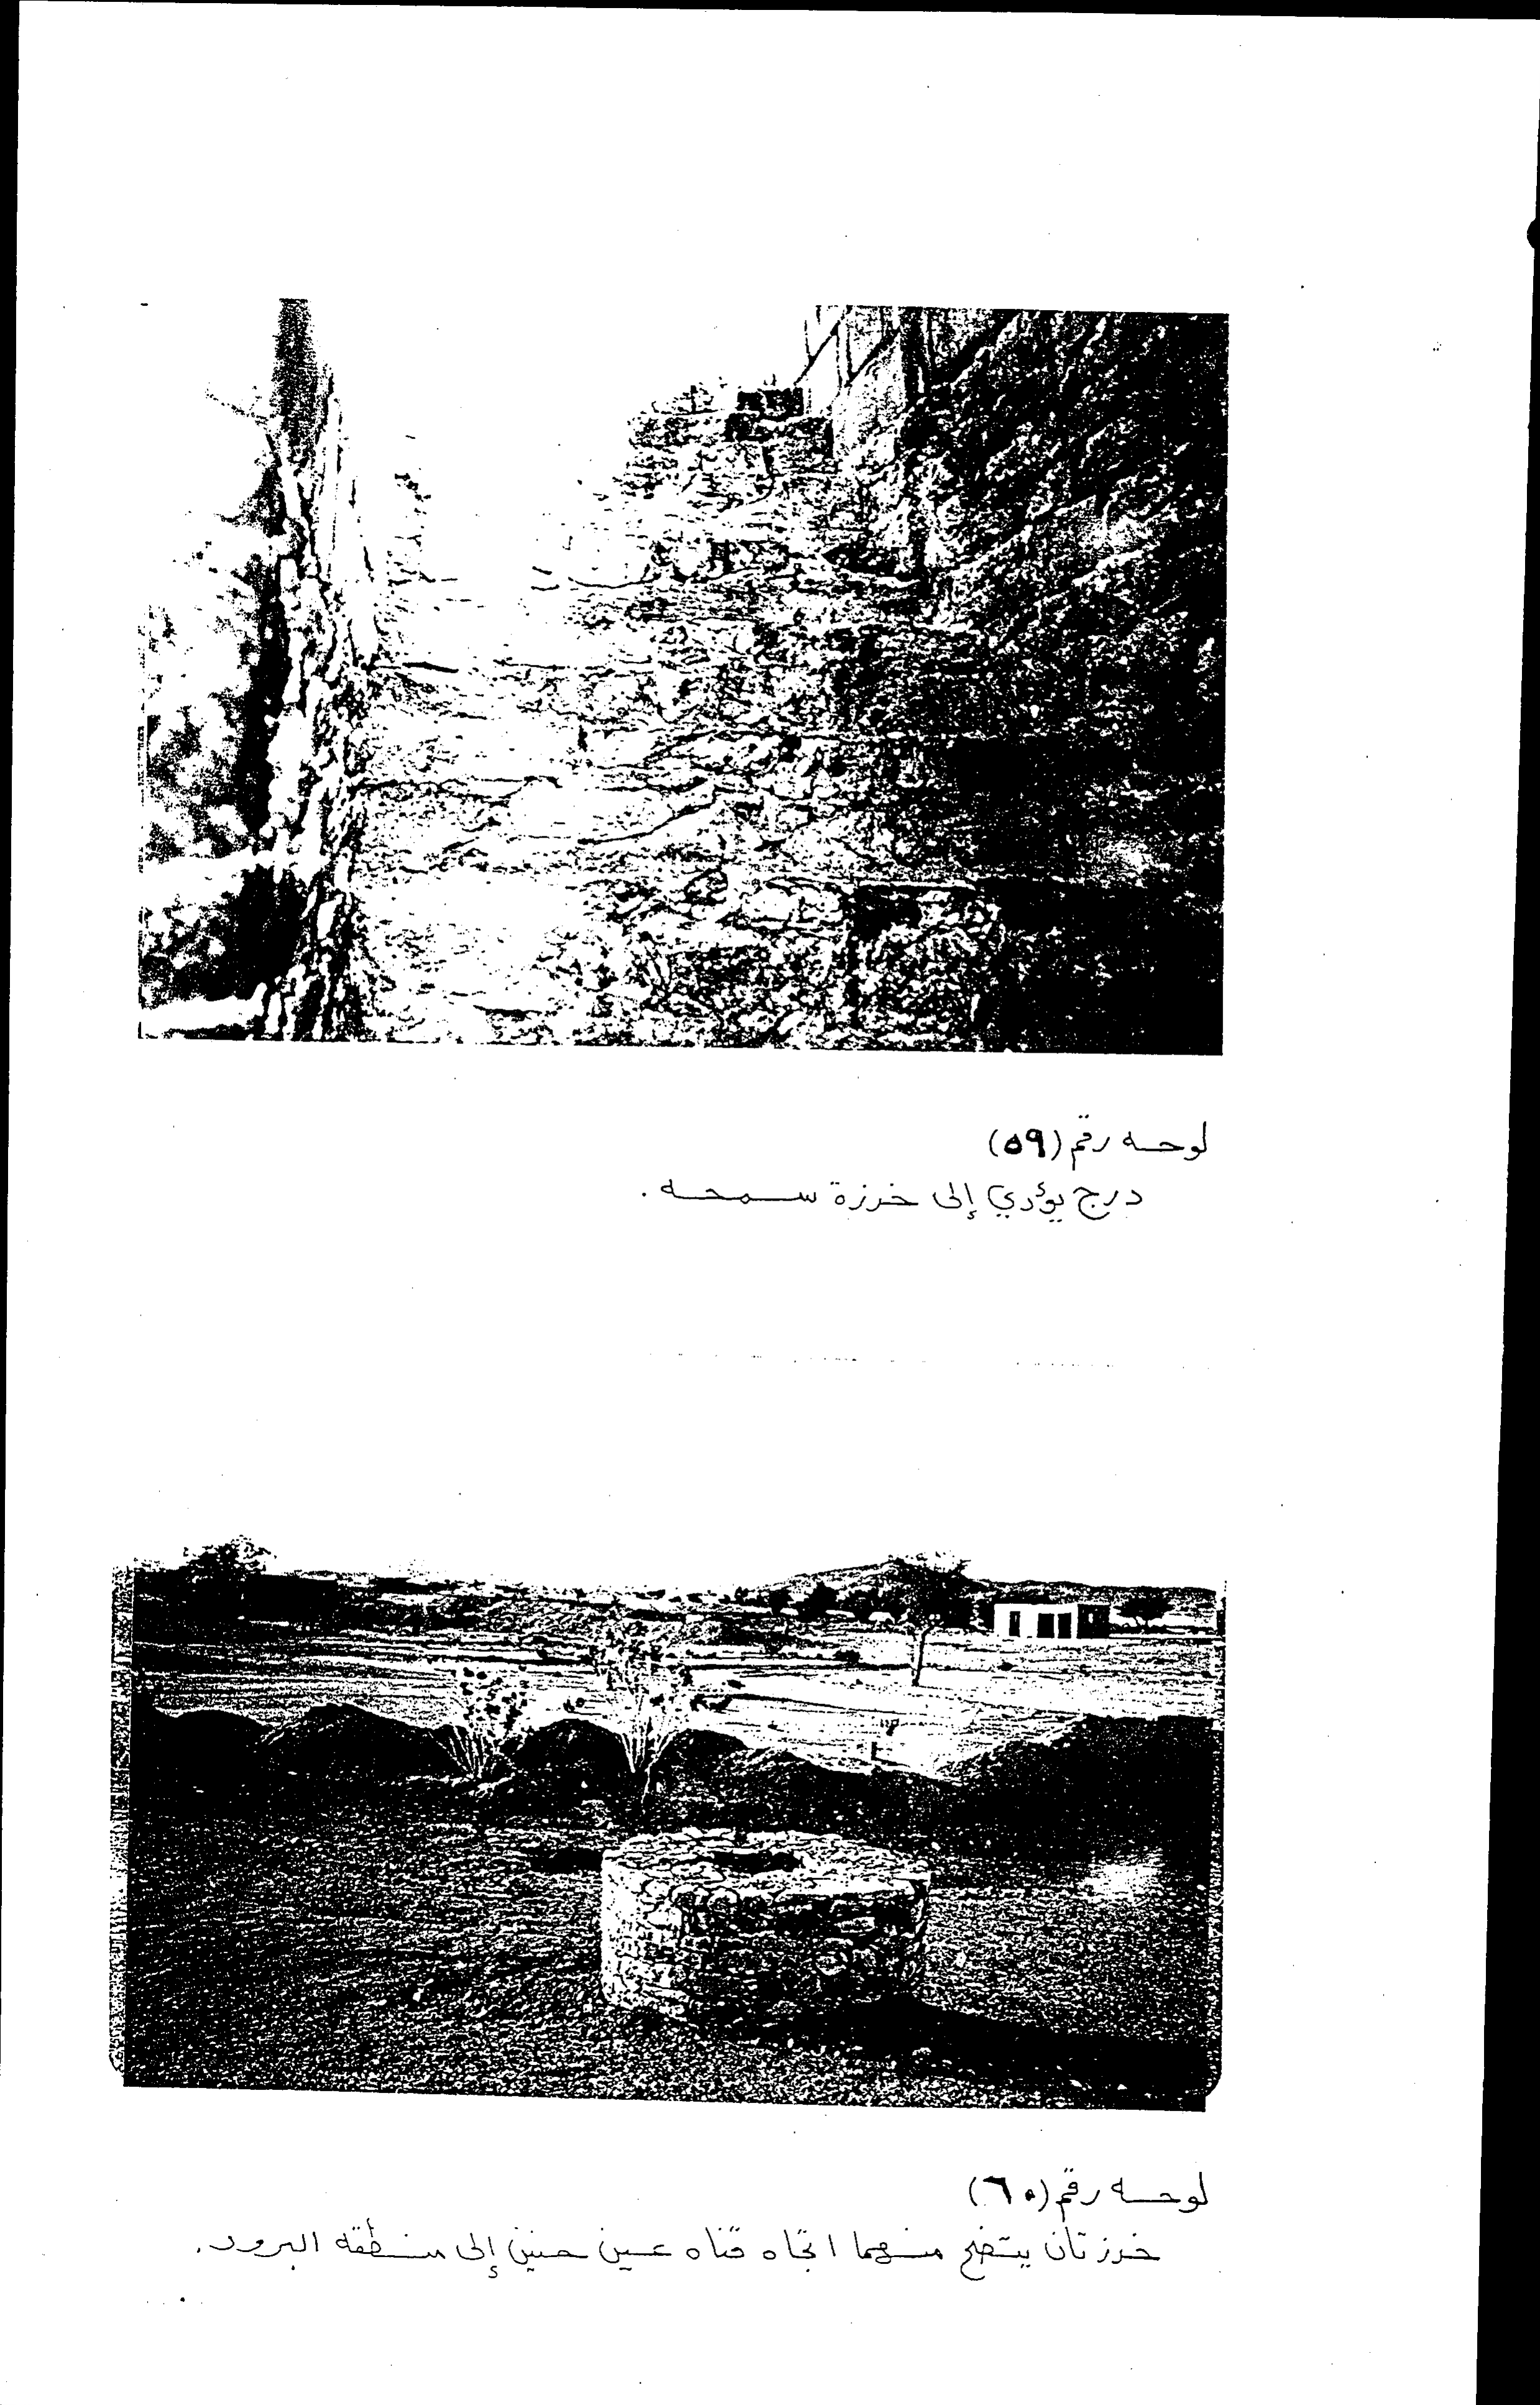 لوحه رقم (٥٩)
درج يؤدي إلى خرزة سمحه .
لوحه رقم (٦٠)
خرزتان يتضح منهما اتجاه قناه عين حنين إلى منطقه البرود .